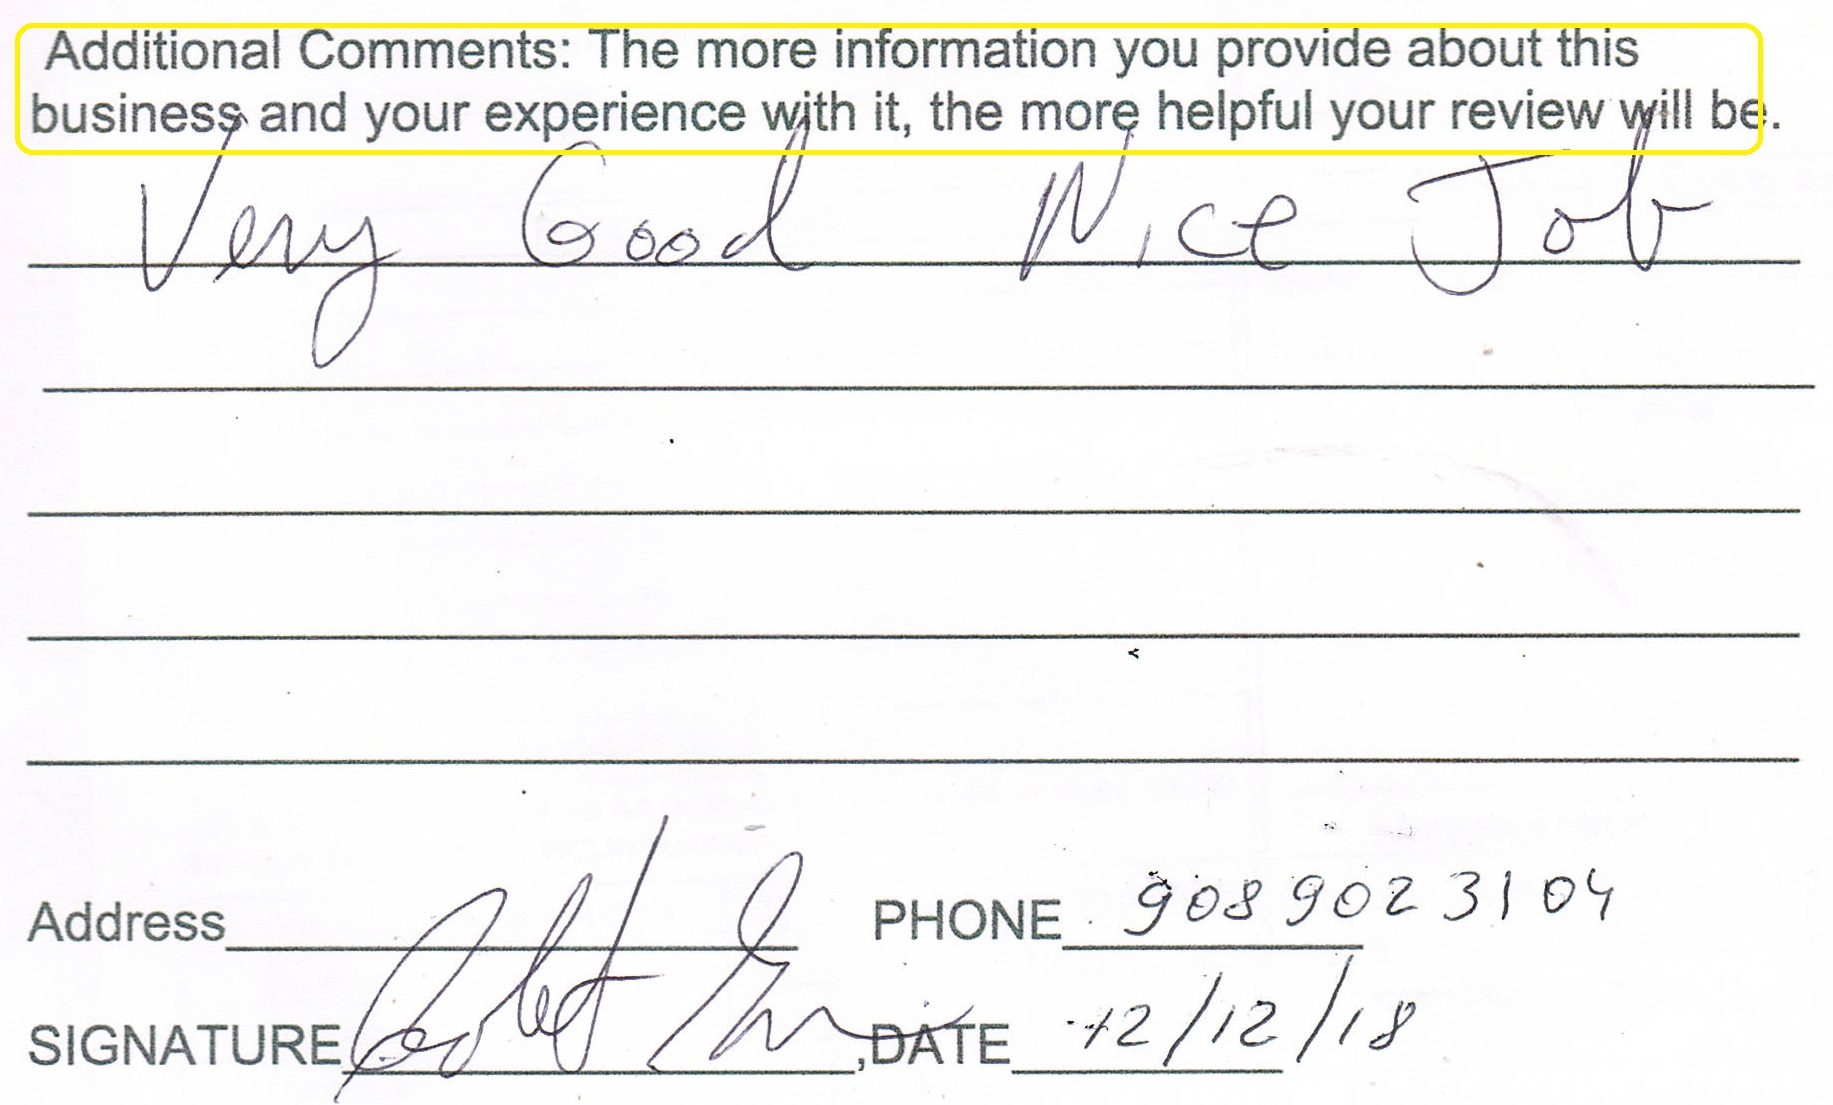 Additional Comments: The more information you provide about this
business and your experience with it, the more helpful your review will be.
Very Good Nice Job
Address PHONE 908 902 3104
SIGNATURE ,DATE 12/12/18